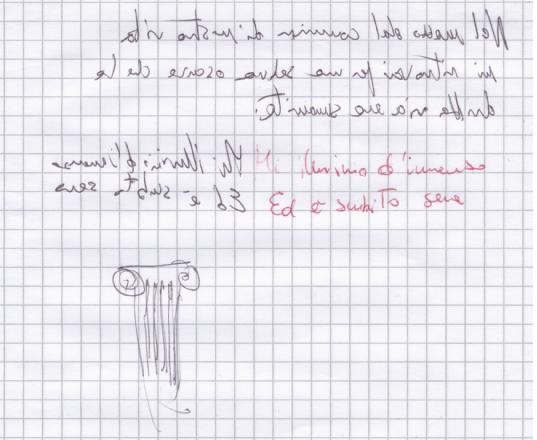 Nel mezzo del cammin di nostra vita
mi ritrovai per una selva oscura che la
diritta via era smarrita.
Mi illumino d'immenso
Ed è subito sera
Mi illumino d'immenso
Ed è subito sera